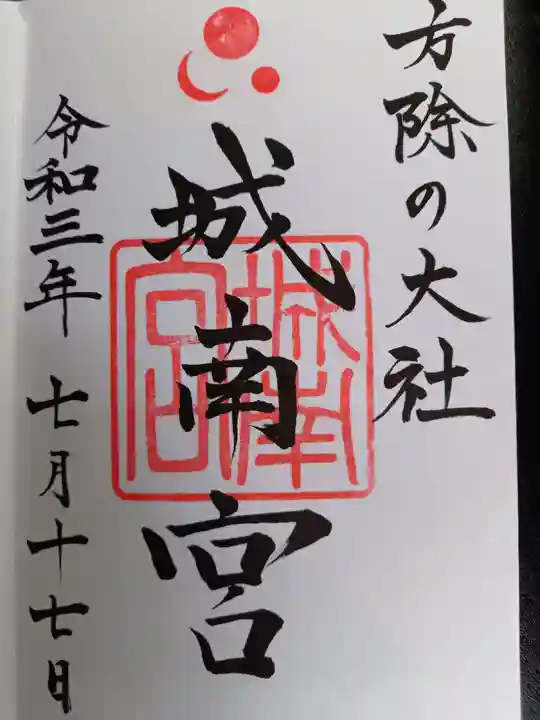 方除の大社
城南宮
城南宮
令和三年 七月十七日